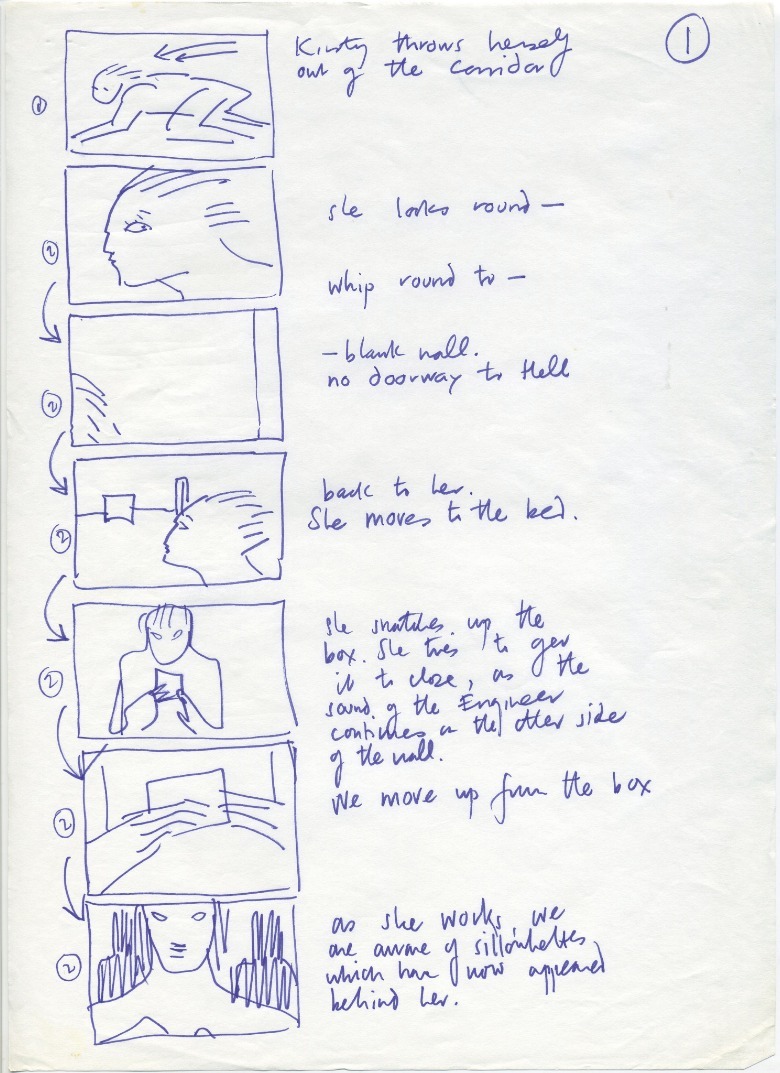 1
Kirsty throws herself
out of the corridor
1
she looks round —
2
whip round to —
— blank wall.
no doorway to Hell
2
back to her.
She moves to the bed.
2
she snatches up the
box. She tries to get
it to close, as the
sound of the Engineer
continues on the other side
of the wall.
2
We move up from the box
2
as she works, we
are aware of silhouettes
which have now appeared
behind her.
2